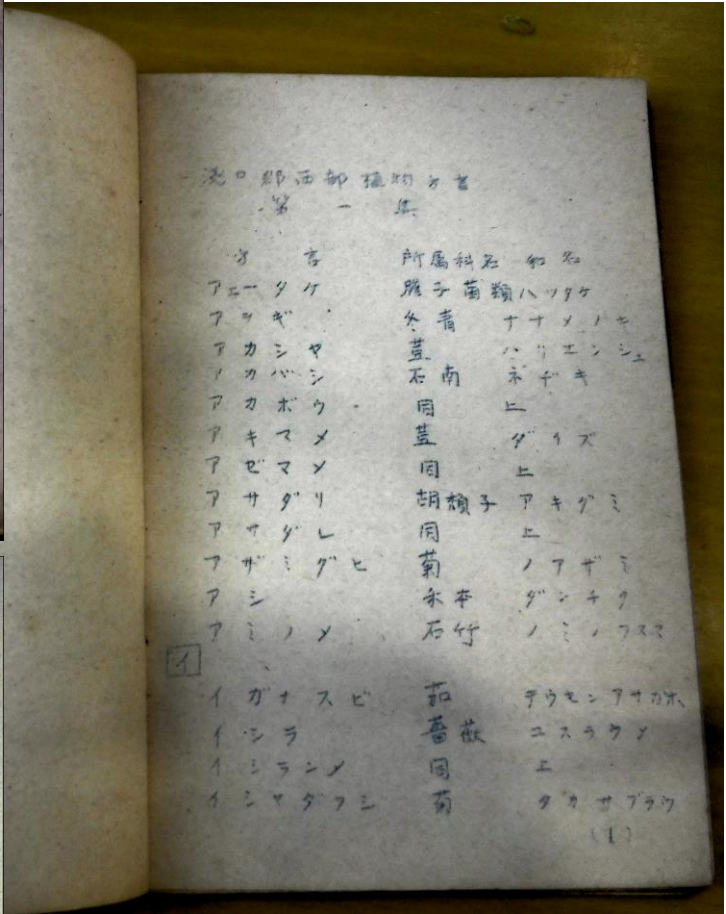 浅口郡西部植物方言
第一集
方言 所属科名 和名
アェータケ 担子菌類 ハツタケ
アヲギ 冬青 ナナメノキ
アカシヤ 荳 ハリエンジュ
アカバシ 石南 ネヂキ
アカボウ 同上
アキマメ 荳 ダイズ
アゼマメ 同上
アサダリ 胡頽子 アキグミ
アサダレ 同上
アザミグヒ 菊 ノアザミ
アシ 禾本 ダンチク
アミノメ 石竹 ノミノフスマ
イ
イガナスビ 茄 テウセンアサガホ
イシラ 薔薇 ユスラウメ
イシランメ 同上
イシャダフシ 菊 タカサブラウ
(1)